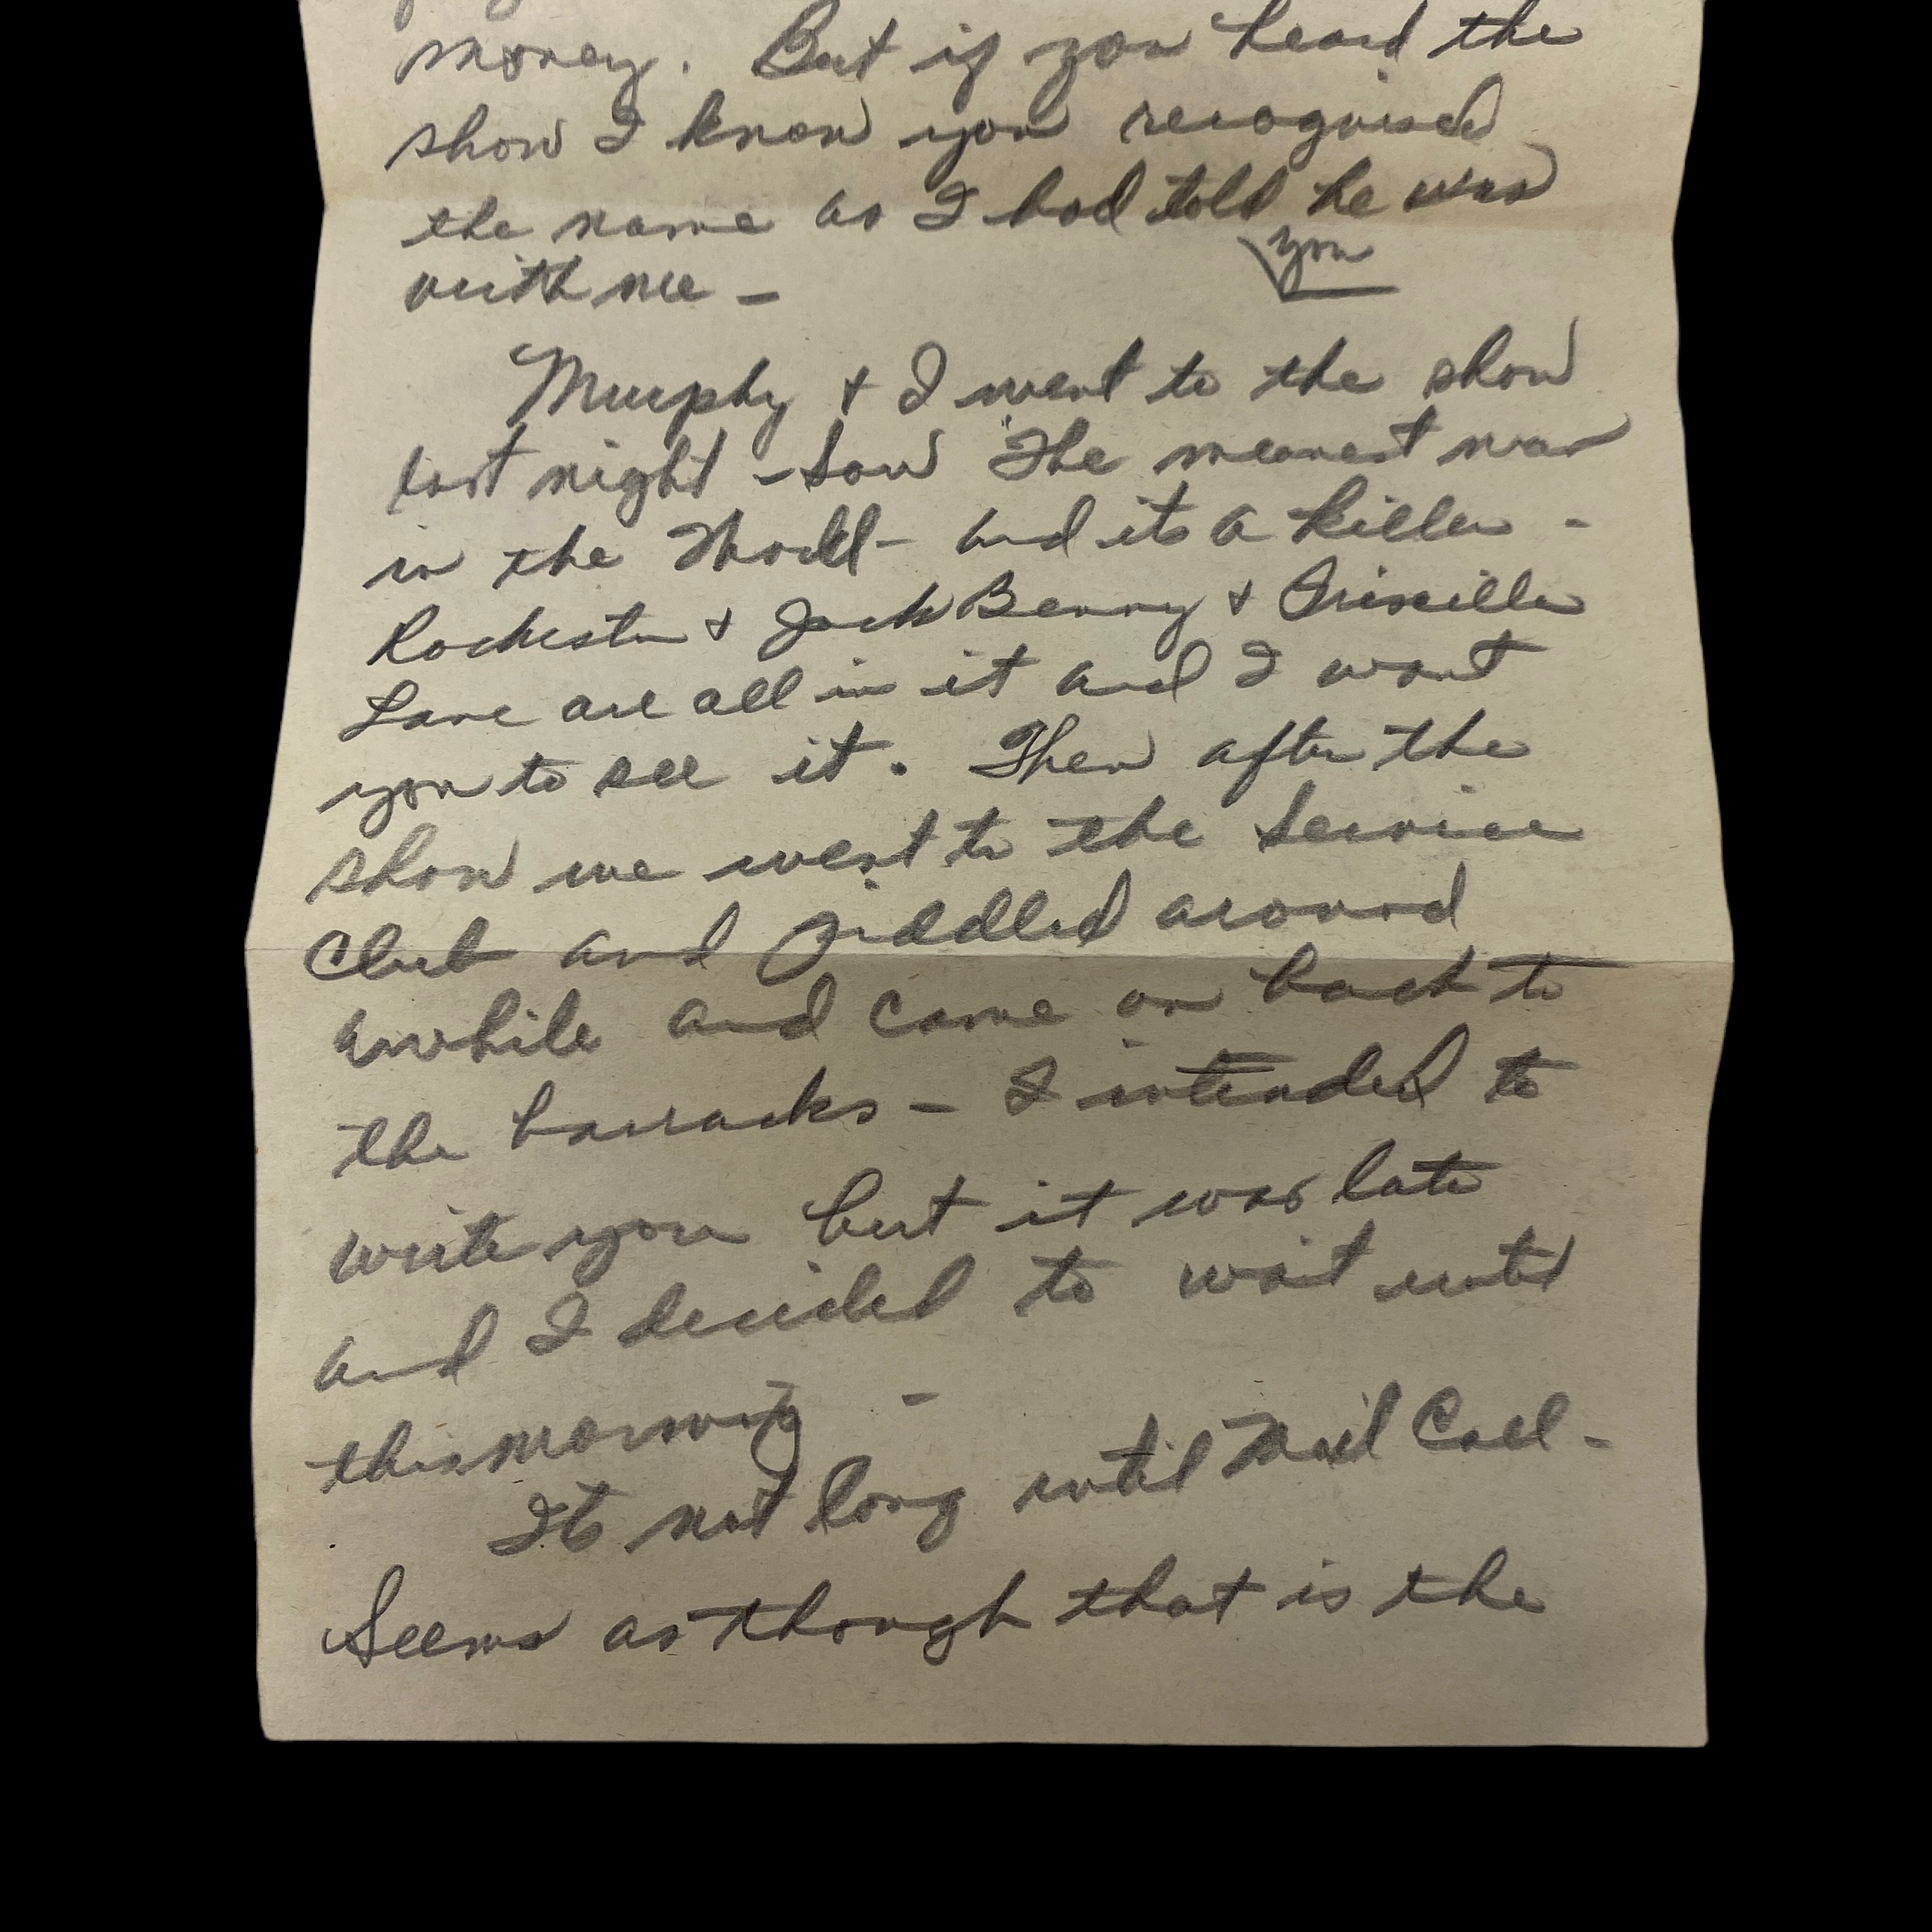 money. But if you heard the
show I know you recognised
the name as I had told he was
you
with me -
Murphy + I went to the show
last night - Saw "The meanest man
in the World - and its a killer -
Rochester + Jack Benny + Priscilla
Lane are all in it and I want
you to see it. Then after the
show we went to the Service
Club and piddled around
awhile and came on back to
the barracks - I intended to
write you but it was late
and I decided to wait until
this morning -
Its not long until Mail Call -
Seems as though that is the